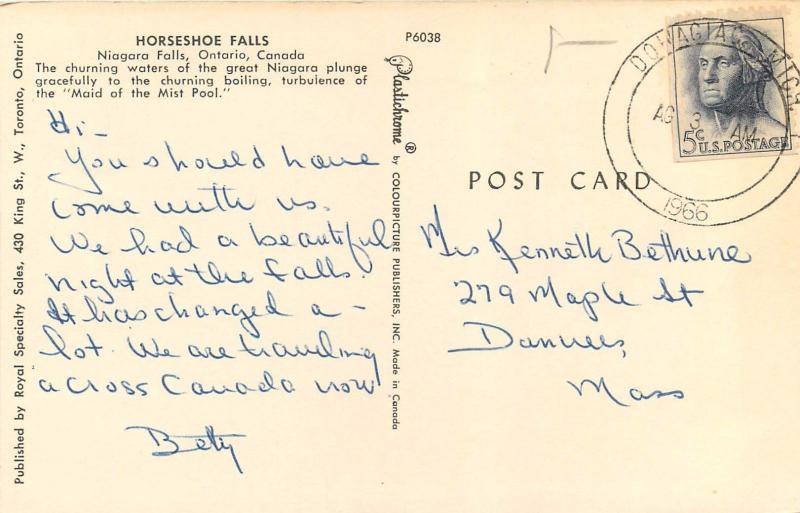 HORSESHOE FALLS
Niagara Falls, Ontario, Canada
The churning waters of the great Niagara plunge
gracefully to the churning boiling, turbulence of
the "Maid of the Mist Pool."
Hi-
You should have
come with us.
We had a beautiful
night at the falls.
It has changed a -
lot. We are traveling
across Canada now
Betty
Published by Royal Specialty Sales, 430 King St., W., Toronto, Ontario
P6038
Plastichrome ® by COLOURPICTURE PUBLISHERS, INC. Made in Canada
POST CARD
DOWAGIAC, MICH.
AG 3 AM
1966
5c
U.S. POSTAGE
Mrs Kenneth Bethune
279 Maple St
Danvers,
Mass